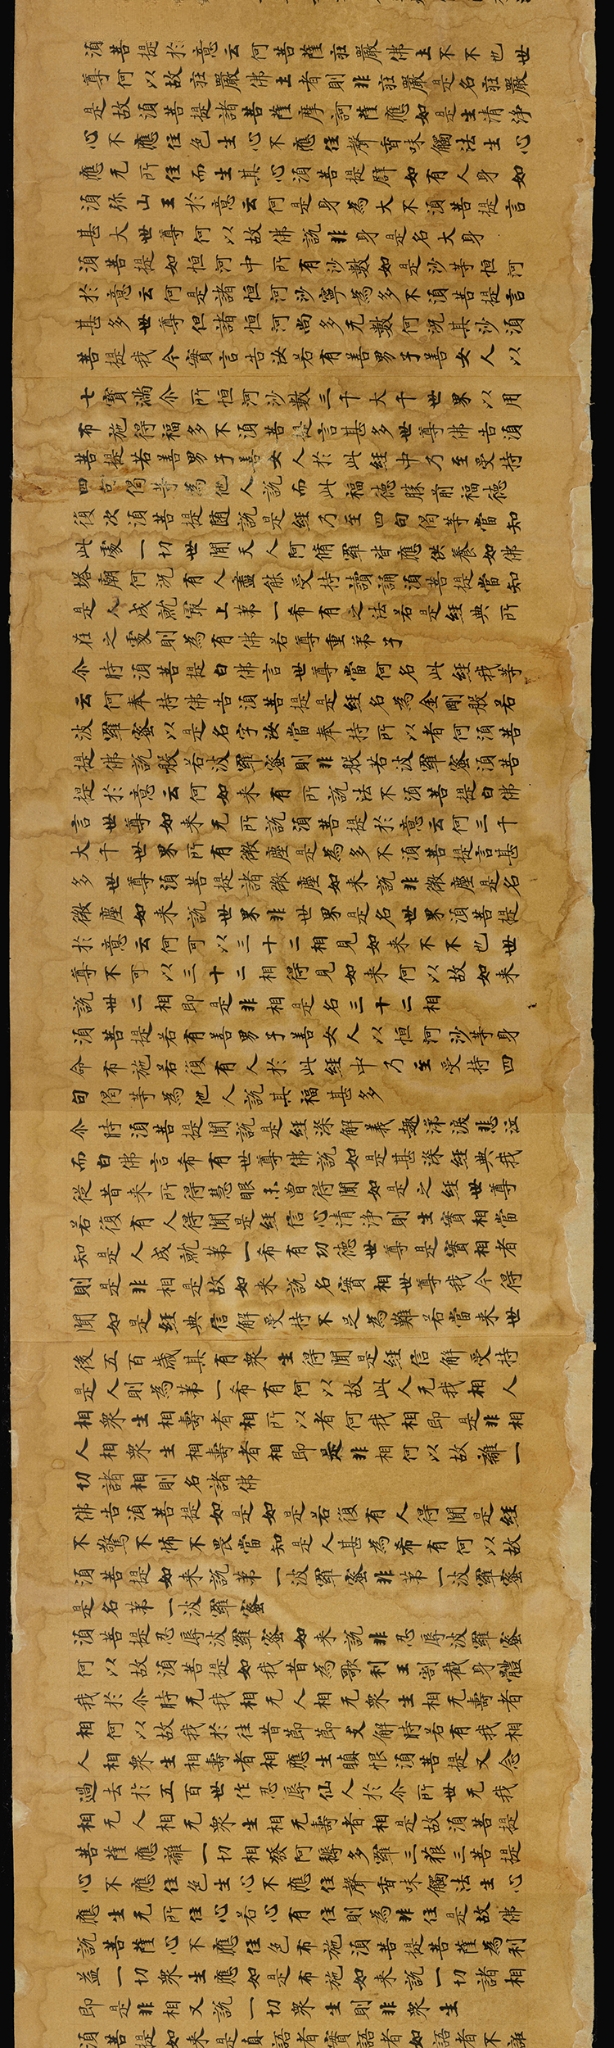 須菩提於意云何菩薩莊嚴佛土不不也世
尊何以故莊嚴佛土者則非莊嚴是名莊嚴
是故須菩提諸菩薩摩訶薩應如是生清淨
心不應住色生心不應住聲香味觸法生心
應无所住而生其心須菩提辟如有人身如
須弥山王於意云何是身為大不須菩提言
甚大世尊何以故佛說非身是名大身
須菩提如恒河中所有沙數如是沙等恒河
於意云何是諸恒河沙寧為多不須菩提言
甚多世尊但諸恒河尚多无數何況其沙須
菩提我今實言告汝若有善男子善女人以
七寶滿尒所恒河沙數三千大千世界以用
布施得福多不須菩提言甚多世尊佛告須
菩提若善男子善女人於此經中乃至受持
四句偈等為他人說而此福德勝前福德
復次須菩提隨說是經乃至四句偈等當知
此處一切世間天人阿脩羅皆應供養如佛
塔廟何況有人盡能受持讀誦須菩提當知
是人成就最上第一希有之法若是經典所
在之處則為有佛若尊重弟子
尒時須菩提白佛言世尊當何名此經我等
云何奉持佛告須菩提是經名為金剛般若
波羅蜜以是名字汝當奉持所以者何須菩
提佛說般若波羅蜜則非般若波羅蜜須菩
提於意云何如来有所說法不須菩提白佛
言世尊如来无所說須菩提於意云何三千
大千世界所有微塵是為多不須菩提言甚
多世尊須菩提諸微塵如来說非微塵是名
微塵如来說世界非世界是名世界須菩提
於意云何可以三十二相見如来不不也世
尊不可以三十二相得見如来何以故如来
說卅二相即是非相是名三十二相
須菩提若有善男子善女人以恒河沙等身
命布施若復有人於此經中乃至受持四
句偈等為他人說其福甚多
尒時須菩提聞說是經深解義趣涕淚悲泣
而白佛言希有世尊佛說如是甚深經典我
從昔来所得慧眼未曾得聞如是之經世尊
若復有人得聞是經信心清淨則生實相當
知是人成就第一希有功德世尊是實相者
則是非相是故如来說名實相世尊我今得
聞如是經典信解受持不足為難若當来世
後五百歲其有衆生得聞是經信解受持
是人則為第一希有何以故此人无我相人
相衆生相壽者相所以者何我相即是非相
人相衆生相壽者相即是非相何以故離一
切諸相則名諸佛
佛告須菩提如是如是若復有人得聞是經
不驚不怖不畏當知是人甚為希有何以故
須菩提如来說第一波羅蜜非第一波羅蜜
是名第一波羅蜜
須菩提忍辱波羅蜜如来說非忍辱波羅蜜
何以故須菩提如我昔為歌利王割截身體
我於尒時无我相无人相无衆生相无壽者
相何以故我於往昔節節支解時若有我相
人相衆生相壽者相應生瞋恨須菩提又念
過去於五百世作忍辱仙人於尒所世无我
相无人相无衆生相无壽者相是故須菩提
菩薩應離一切相發阿耨多羅三藐三菩提
心不應住色生心不應住聲香味觸法生心
應生无所住心若心有住則為非住是故佛
說菩薩心不應住色布施須菩提菩薩為利
益一切衆生應如是布施如来說一切諸相
即是非相又說一切衆生則非衆生
須菩提如来是真語者實語者如語者不誑